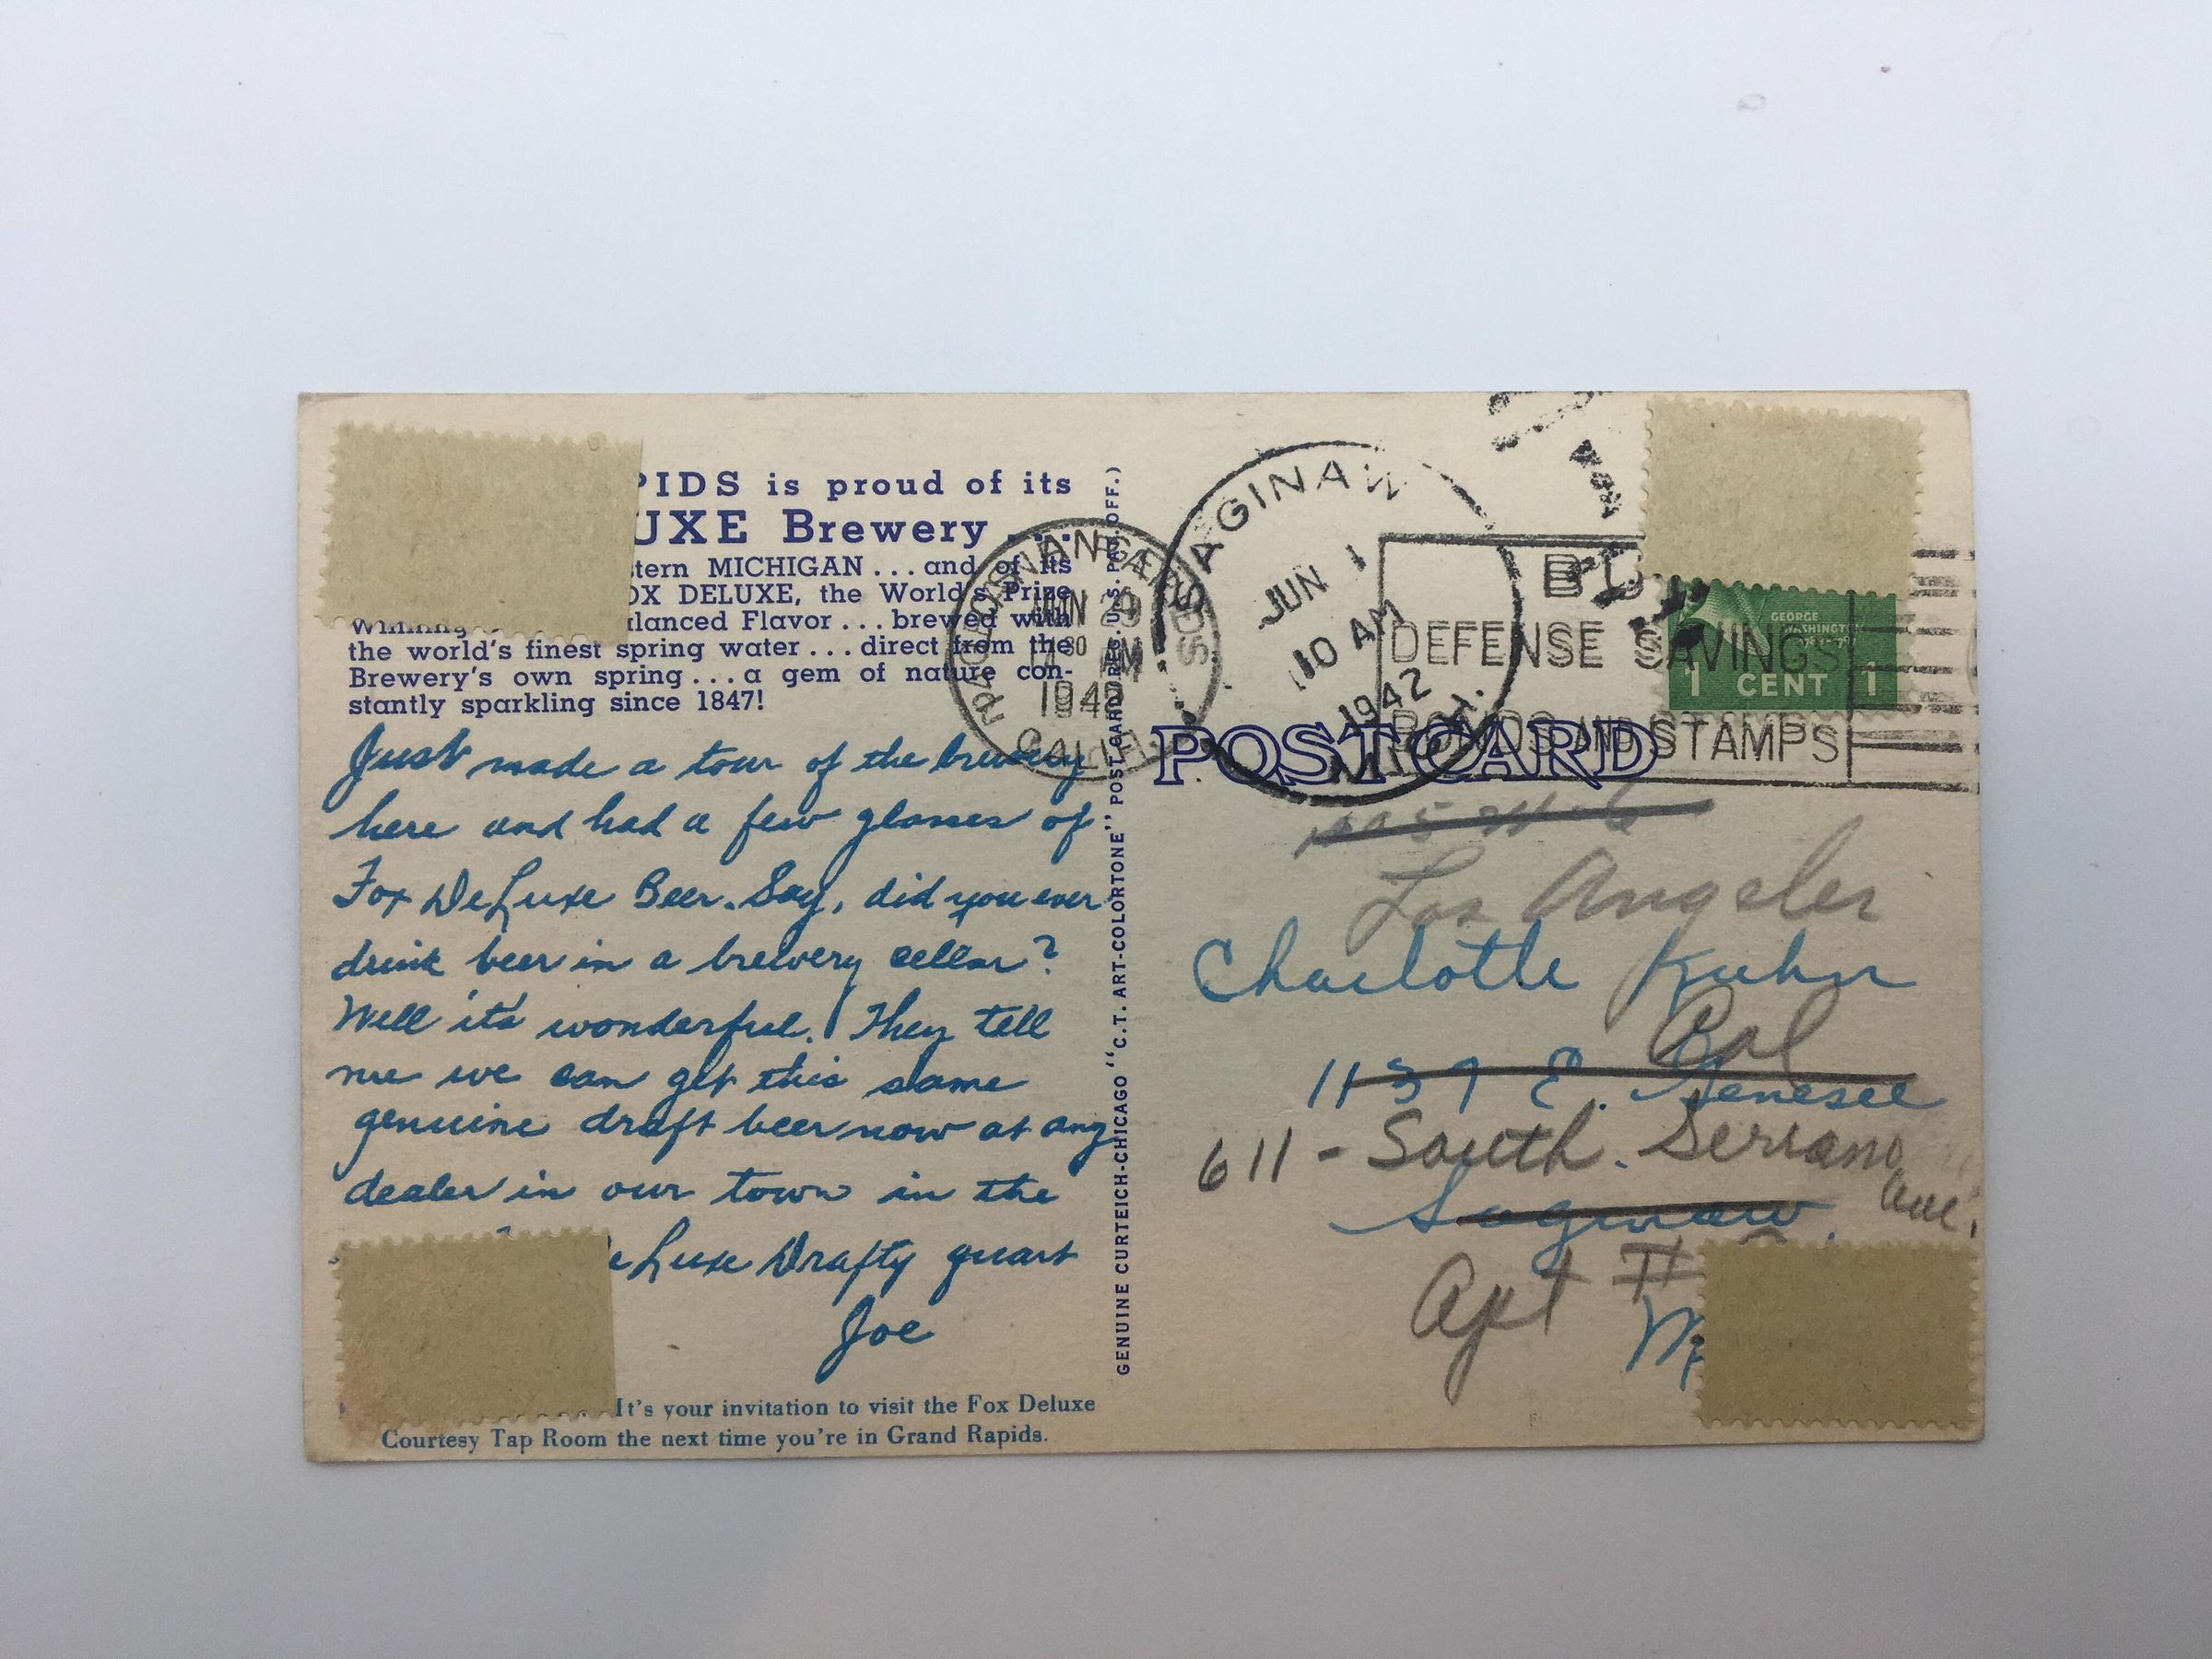 PIDS is proud of its
UXE Brewery . . .
stern MICHIGAN . . . and of its
OX DELUXE, the World's Prize
Winning alanced Flavor . . . brewed with
the world's finest spring water . . . direct from the
Brewery's own spring . . . a gem of nature con-
stantly sparkling since 1847!
Just made a tour of the brewery
here and had a few glasses of
Fox DeLuxe Beer. Say, did you ever
drink beer in a brewery cellar?
Well it's wonderful. They tell
me we can get this same
genuine draft beer now at any
dealer in our town in the
eLuxe Drafty quart
Joe
It's your invitation to visit the Fox Deluxe
Courtesy Tap Room the next time you're in Grand Rapids.
GENUINE CURTEICH-CHICAGO "C.T. ART-COLORTONE" POST CARD (REG. U.S. PAT. OFF.)
CALIF.
SAGINAW
JUN 1
10 AM
1942
DEFENSE SAVINGS
BONDS AND STAMPS
GEORGE
WASHINGTON
1 CENT 1
POST CARD
Los Angeles
Charlotte Kuhn
Cal
1137 E. Genesee
611 - South. Serrano
ave.
Saginaw.
Apt #